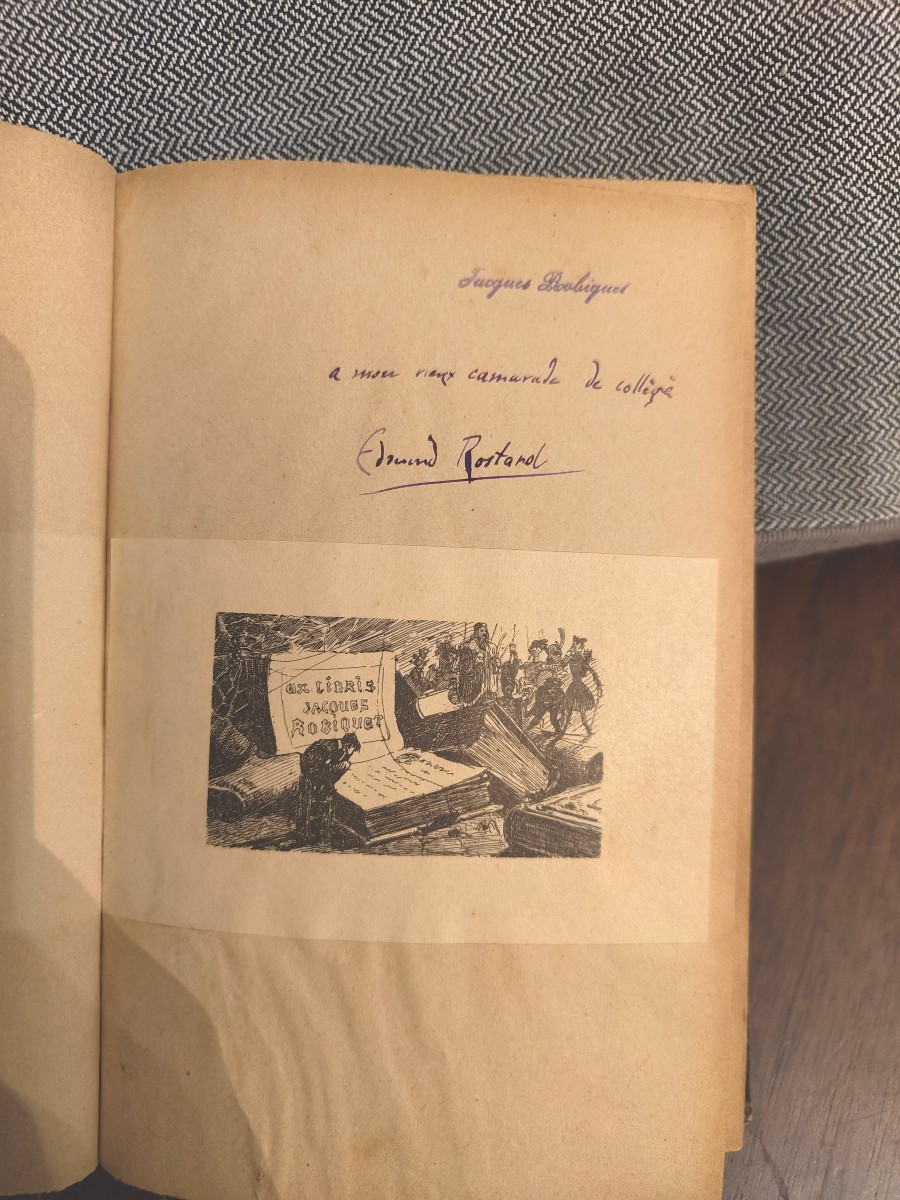 Jacques Robiquet
a mon vieux camarade de collège
Edmond Rostand
EX LIBRIS
JACQUES
ROBIQUET